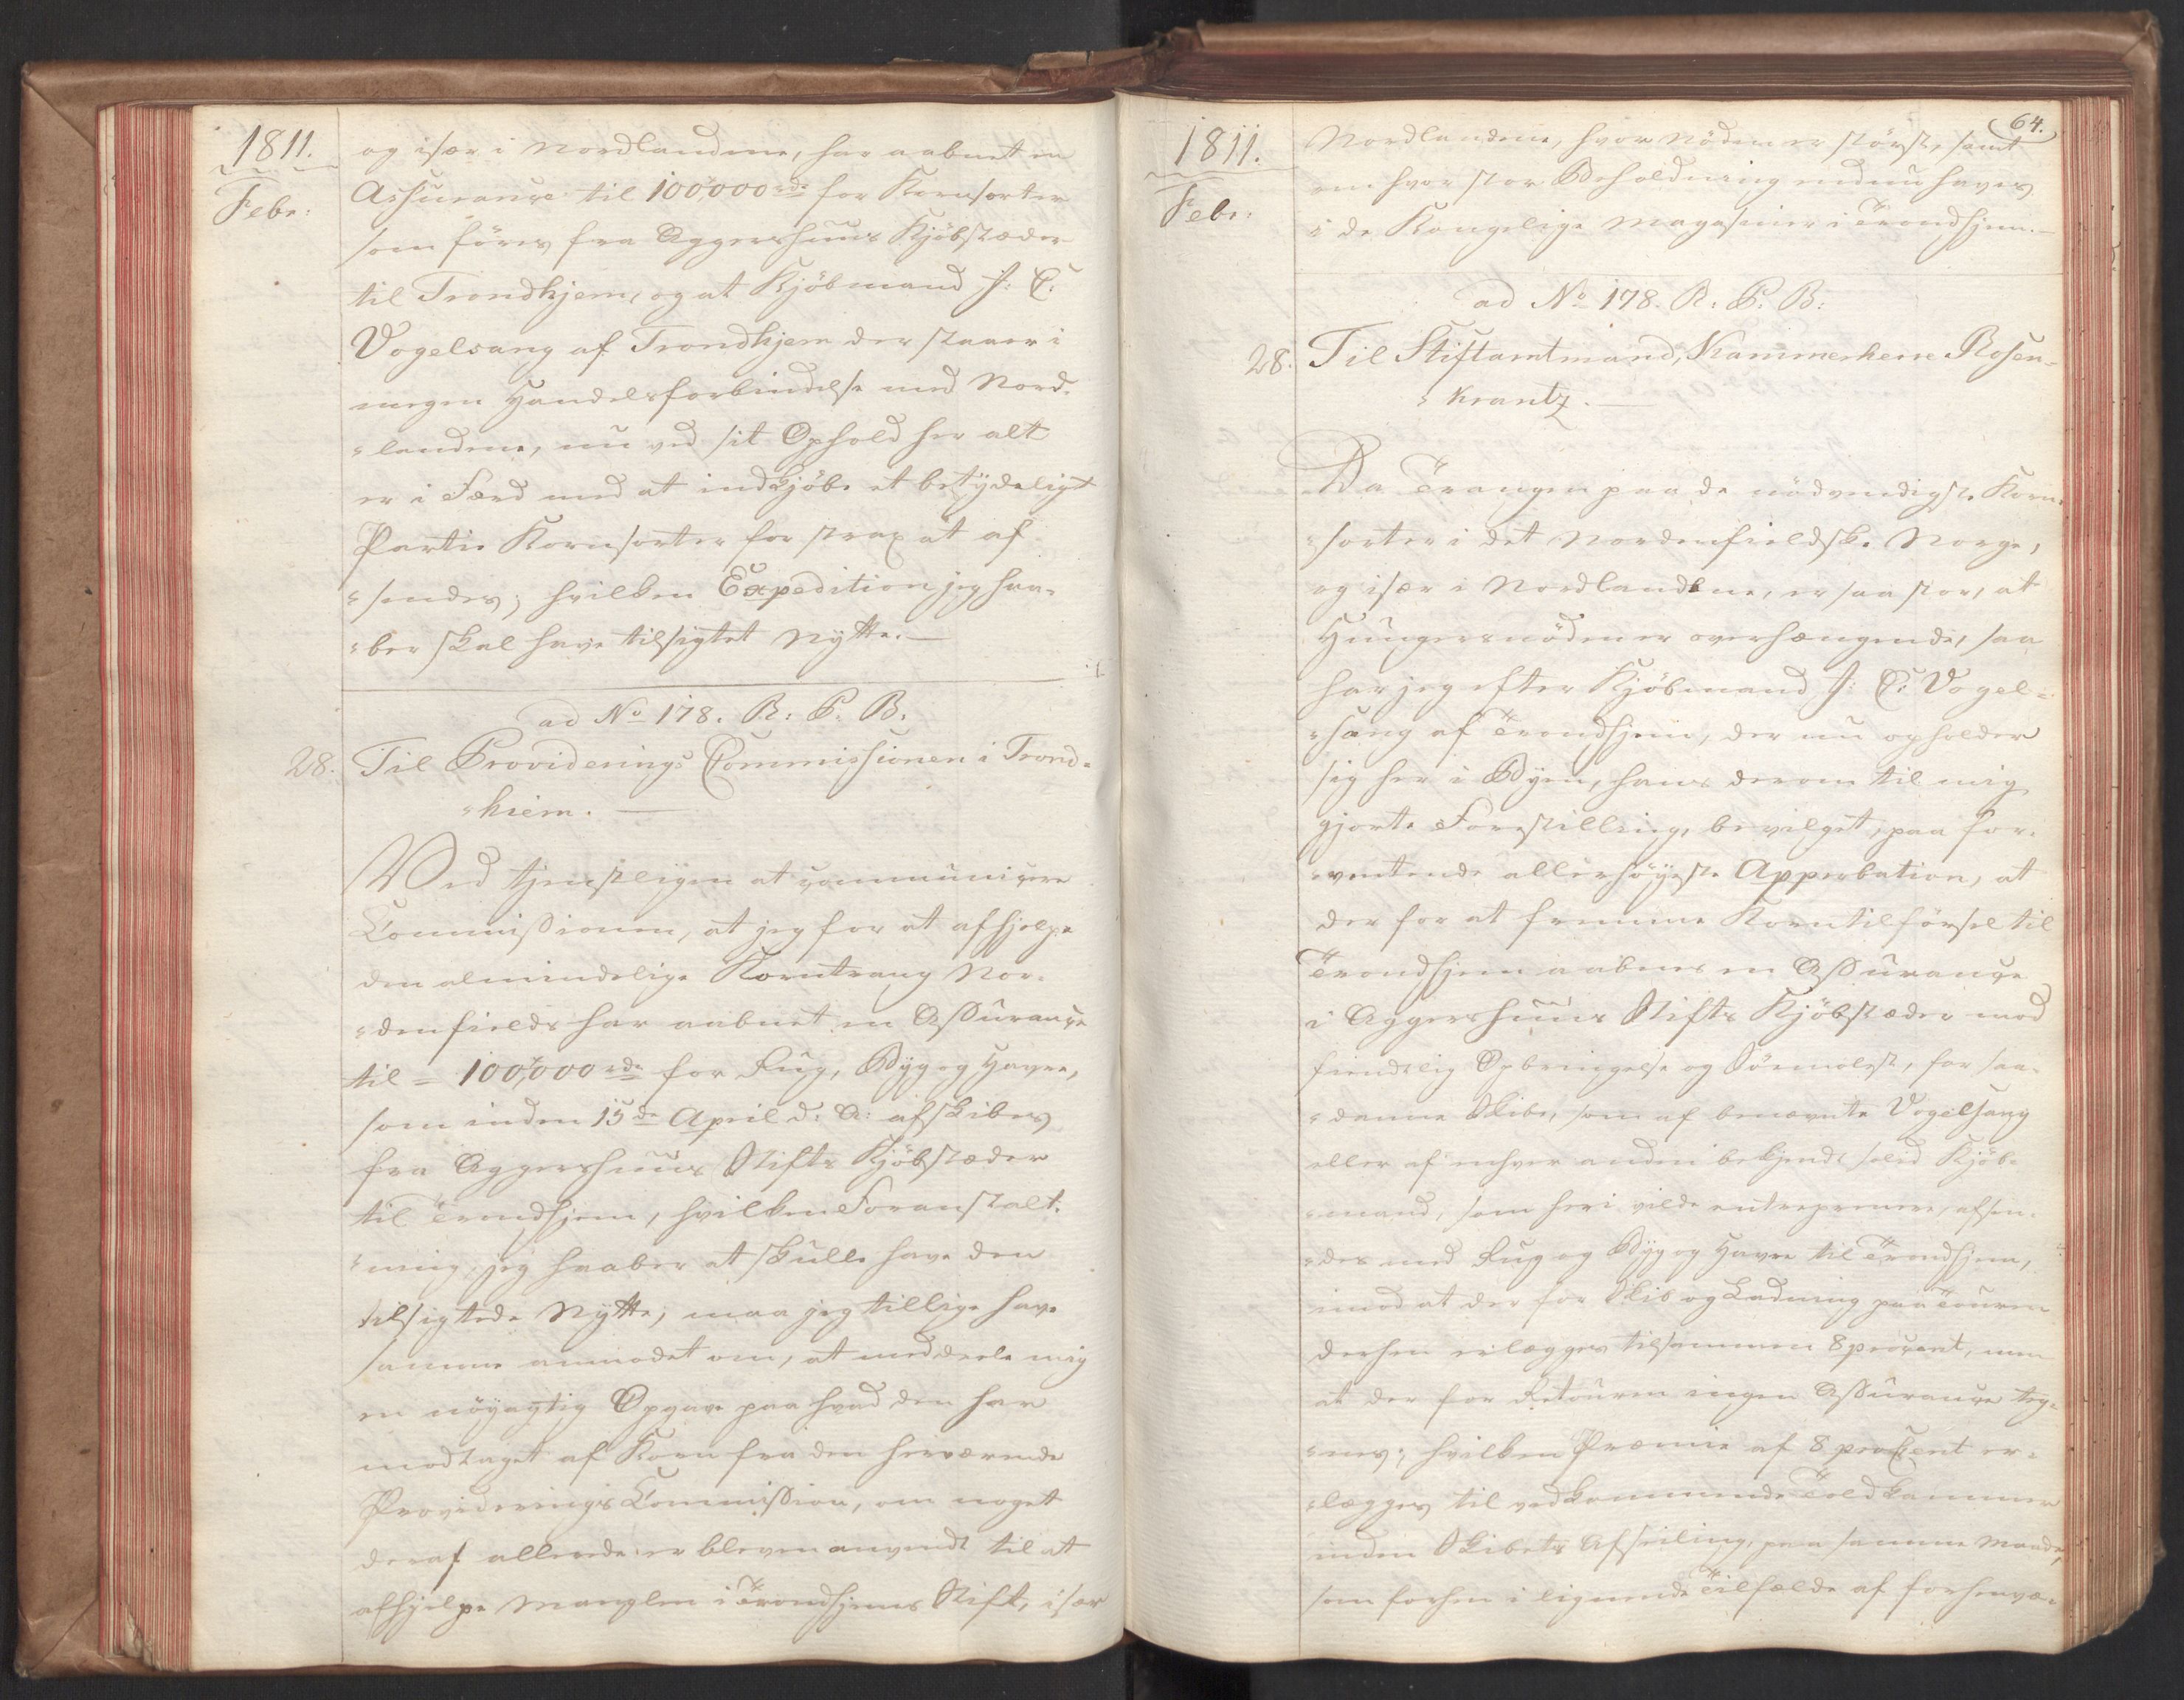 1811.
Febr:
og især i Nordlandene, har aabnet en
Assurance til 100,000 rd. for Kornsorter
som föres fra Aggershuus Kjöbstæder
til Trondhjem, og at Kjöbmand J: C.
Vogelsang af Trondhjem der staaer i
megen Handelsforbindelse med Nord-
"landene, nu ved sit Ophold her alt
er i Færd med at indkjöbe et betydeligt
Partie Kornsorter for strax at af
"sendes; hvilken Expedition jeg haa-
"ber skal have tilsigtet Nytte. —
ad No 178. R: P: B.
28. Til Providerings Commissionen i Trond-
"hiem. —
Ved tjenstligen at communicere
Commissionen, at jeg for at afhjelpe
den almindelige Korntrang Nor-
"denfields har aabnet en Assurance
til = 100,000 rd. for Rug, Byg og Havre,
som inden 15de April d: A: afskibes
fra Aggershuus Stifts Kjöbstæder
til Trondhjem, hvilken Foranstalt-
"ning jeg haaber at skulle have den
tilsigtede Nytte; maa jeg tillige have
samme anmodet om, at meddeele mig
en nöyagtig Opgave paa hvad den har
modtaget af Korn fra den herværende
Providerings Commission, om noget
deraf allerede er bleven anvendt til at
afhjelpe Manglen i Trondhjems Stift, især
64.
1811.
Febr:
Nordlandene, hvor Nöden er störst, samt
om hvor stor Beholdning endnu haves
i de Kongelige Magasiner i Trondhjem. —
ad No 178. R: P: B:
28. Til Stiftamtmand, Kammerherre Rosen-
"krantz. —
Da Trangen paa de nödvendigste Korn-
"sorter i det Nordenfieldske Norge,
og især i Nordlandene, er saa stor, at
Hungersnöden er overhængende, saa
har jeg efter Kjöbmand J: C: Vogel-
"sang af Trondhjem, der nu opholder
sig her i Byen, hans derom til mig
gjorte Forestilling, bevilget, paa for-
"ventende allerhöyeste Approbation, at
der for at fremme Korntilförsel til
Trondhjem aabnes en Assurance
i Aggershuus Stifts Kjöbstæder mod
fiendtlig Opbringelse og Sörmolest, for saa-
"danne Skibe, som af benævnte Vogelsang
eller af enhver anden bekjendt solid Kjöb-
"mand, som heri vilde entreprenere, afsen-
"des med Rug og Byg og Havre til Trondhjem,
imod at der for Skib og Ladning paa Touren
derhen erlægges tilsammen 8 procent, men
at der for Retouren ingen Assurance teg-
"nes; hvilken Præmie af 8 proCent er-
"lægges til vedkommende Toldkammer
inden Skibets Afseiling, paa samme Maade,
som forhen i lignende Tilfælde af forhenvæ-